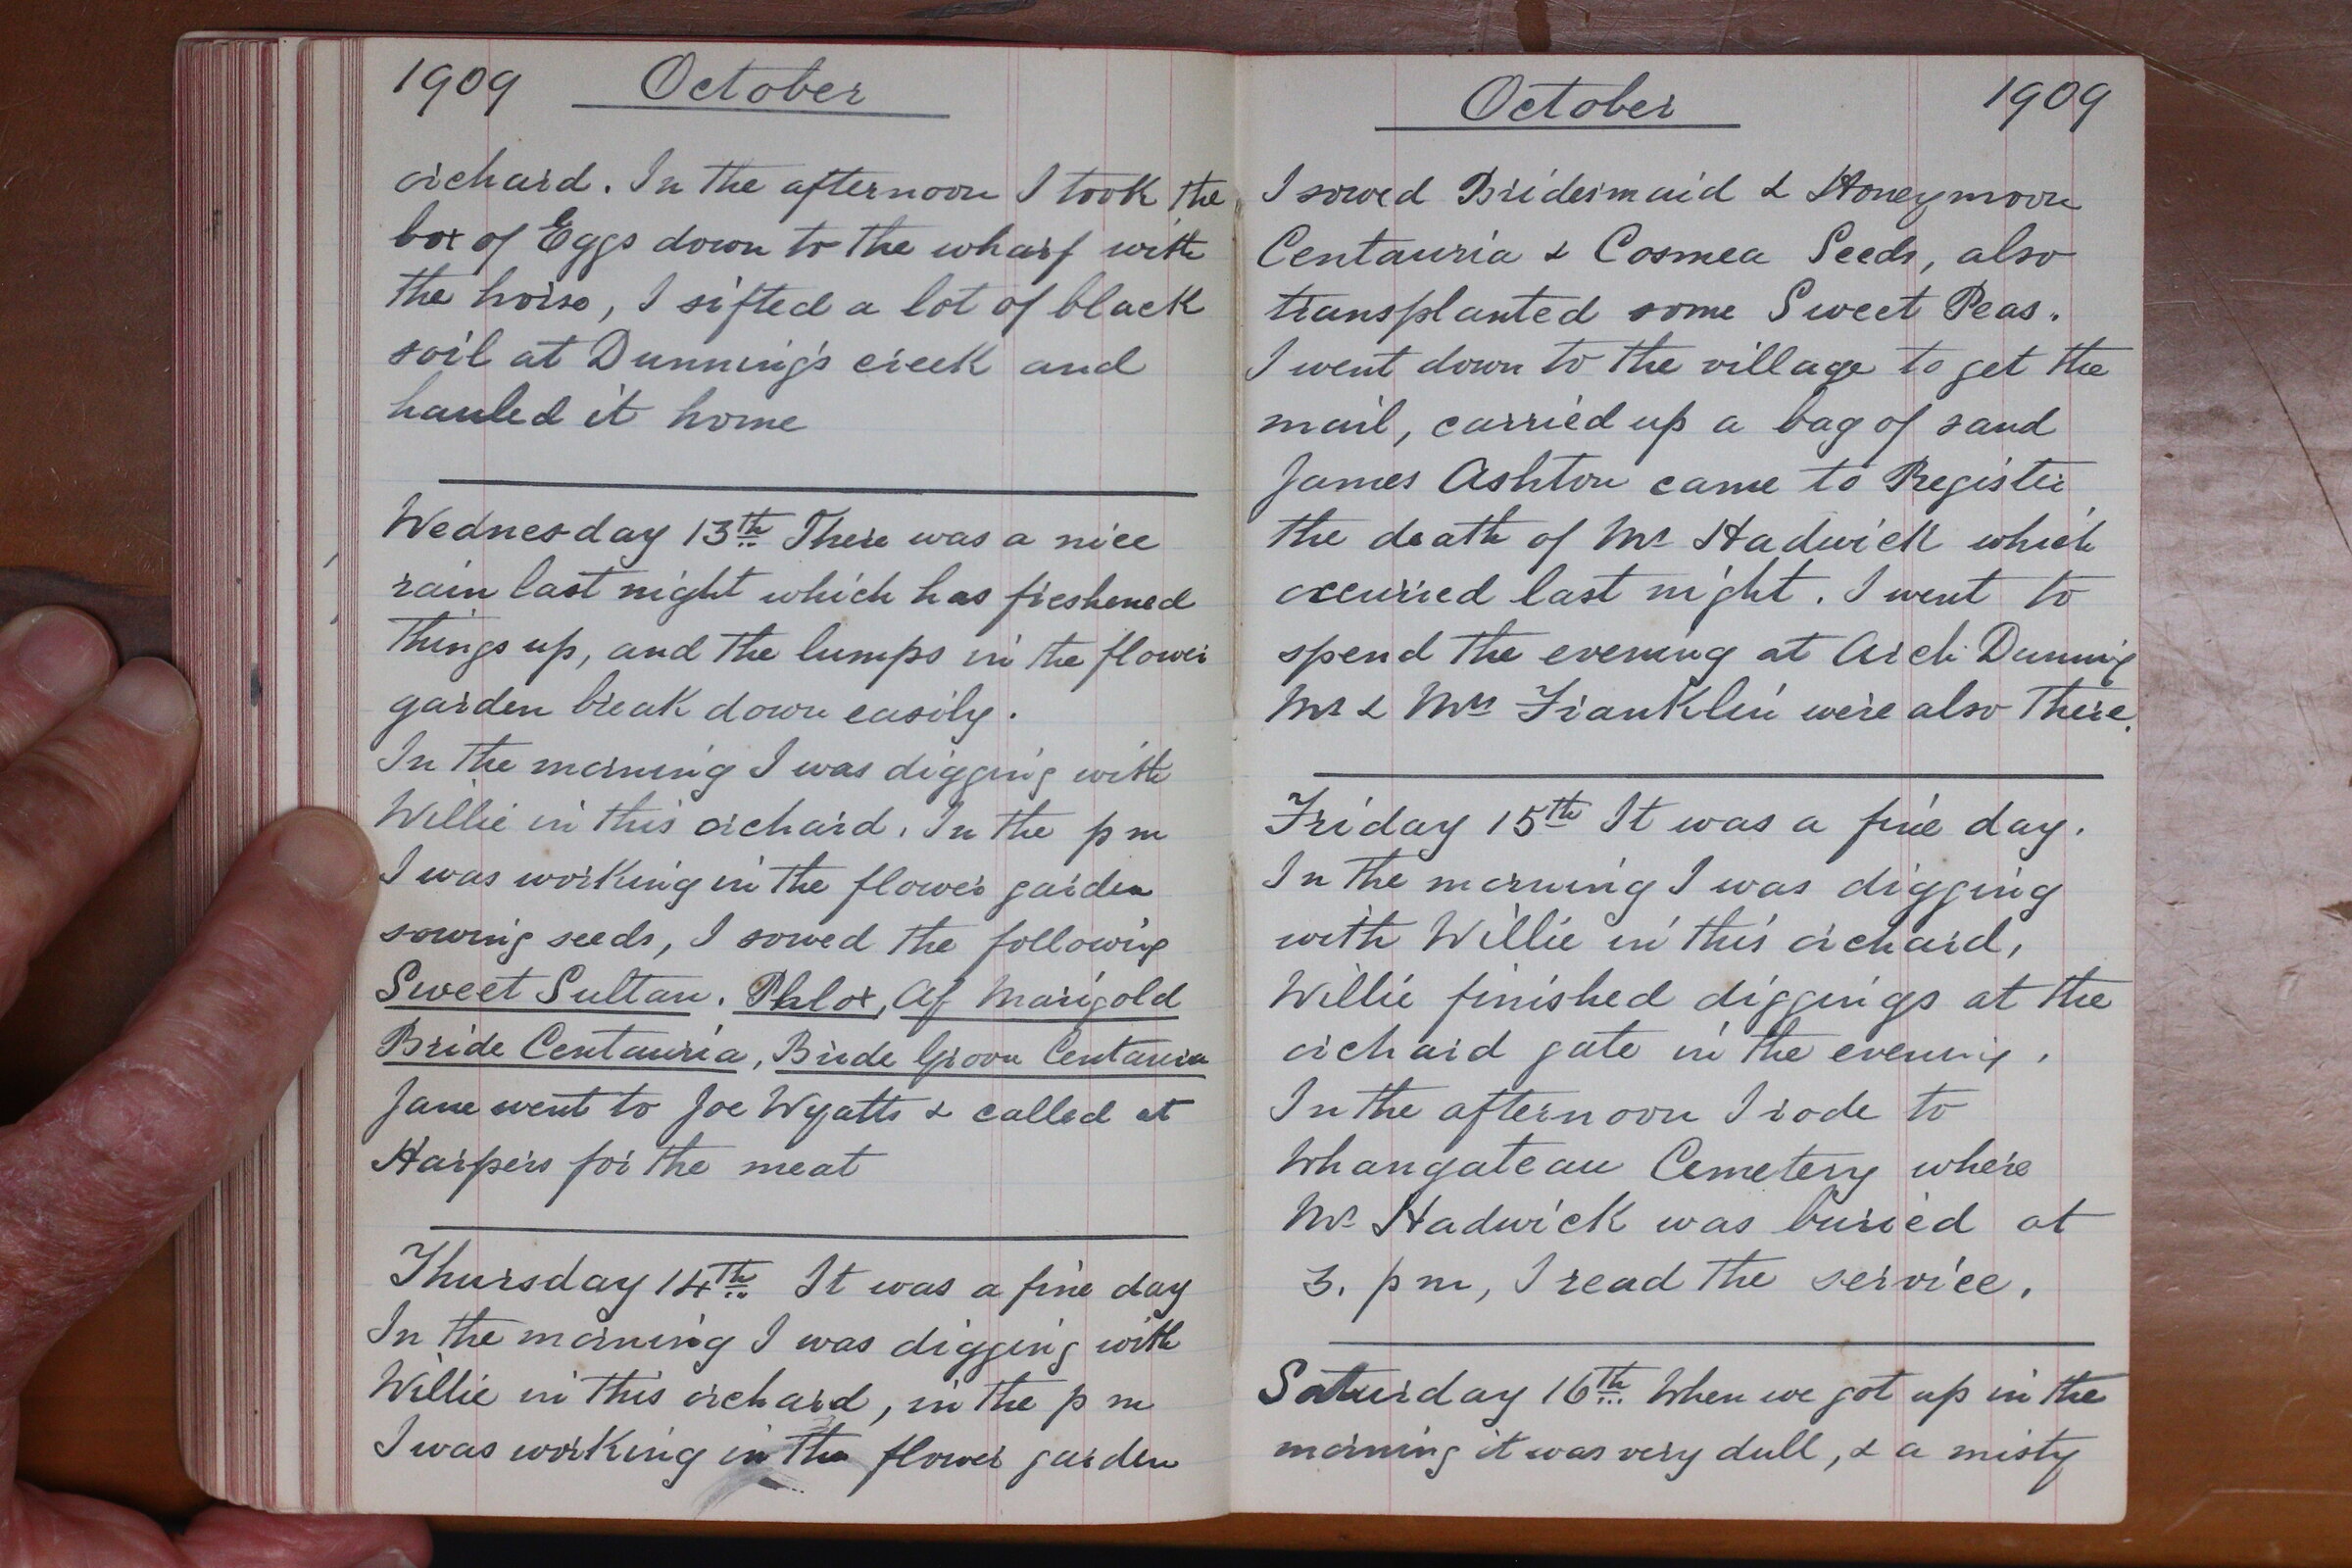 1909 October
orchard. In the afternoon I took the
box of Eggs down to the wharf with
the horse, I sifted a lot of black
soil at Dunning's creek and
hauled it home
Wednesday 13th There was a nice
rain last night which has freshened
things up, and the lumps in the flower
garden break down easily.
In the morning I was digging with
Willie in this orchard. In the pm
I was working in the flower garden
sowing seeds, I sowed the following
Sweet Sultan. Phlox, Af Marigold
Bride Centauria, Bride Groom Centauria
Jane went to Joe Wyatts & called at
Harpers for the meat
Thursday 14th It was a fine day
In the morning I was digging with
Willie in this orchard, in the pm
I was working in the flower garden
October 1909
I sowed Bridesmaid & Honeymoon
Centauria & Cosmea Seeds, also
transplanted some Sweet Peas.
I went down to the village to get the
mail, carried up a bag of sand
James Ashton came to Register
the death of Mr Hadwick which
occurred last night. I went to
spend the evening at Arch Dunning
Mr & Mrs Franklin were also there.
Friday 15th It was a fine day.
In the morning I was digging
with Willie in this orchard,
Willie finished diggings at the
orchard gate in the evening.
In the afternoon I rode to
Whangateau Cemetery where
Mr Hadwick was buried at
3. pm, I read the service.
Saturday 16th When we got up in the
morning it was very dull, & a misty